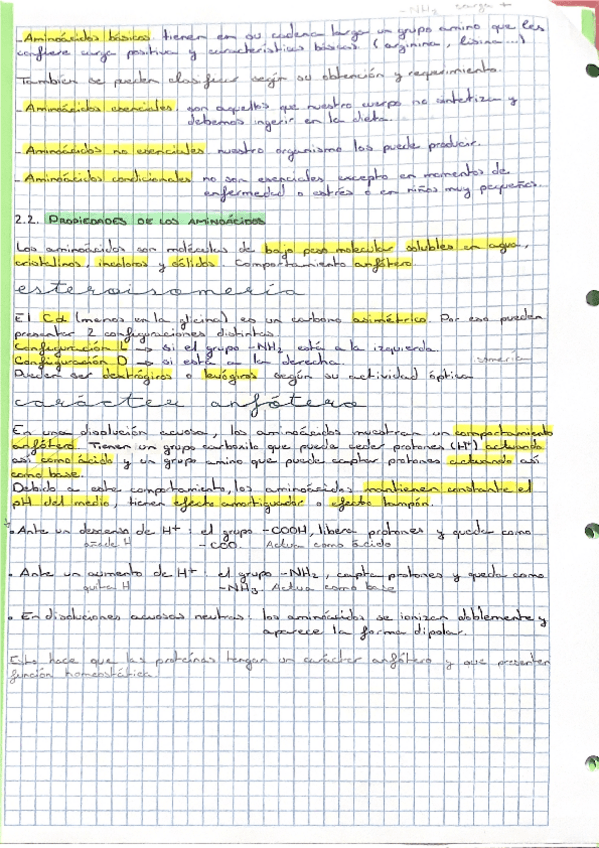 -NH₂ carga +
- Aminoácidos básicos tienen en su cadena larga un grupo amino que les
confiere carga positiva y características básicas. (arginina, lisina...)
También se pueden clasificar según su obtención y requerimiento.
- Aminoácidos esenciales son aquellos que nuestro cuerpo no sintetiza y
debemos ingerir en la dieta.
- Aminoácidos no esenciales nuestro organismo los puede producir.
- Aminoácidos condicionales no son esenciales excepto en momentos de
enfermedad o estrés o en niños muy pequeños.
2.2. PROPIEDADES DE LOS AMINOÁCIDOS
Los aminoácidos son moléculas de bajo peso molecular solubles en agua,
cristalinos, incoloros y sólidos. Comportamiento anfótero
esteroisomería
El Cα (menos en la glicina) es un carbono asimétrico. Por eso pueden
presentar 2 configuraciones distintas
Configuración L → si el grupo -NH₂ está a la izquierda.
Configuración D → si está a la derecha.
Pueden ser dextrógiros o levógiros según su actividad óptica
carácter anfótero
En una disolución acuosa, los aminoácidos muestran un comportamiento
anfótero. Tienen un grupo carboxilo que puede ceder protones (H⁺) actuando
así como ácido y un grupo amino que puede captar protones actuando así
como base.
Debido a este comportamiento, los aminoácidos mantienen constante el
pH del medio, tienen efecto amortiguador o efecto tampón.
• Ante un descenso de H⁺: el grupo -COOH, libera protones y queda como
añade H -COO. Actua como ácido
• Ante un aumento de H⁺: el grupo -NH₂, capta protones y queda como
quita H -NH₃. Actua como base
• En disoluciones acuosas neutras: los aminoácidos se ionizan doblemente y
aparece la forma dipolar.
Esto hace que las proteínas tengan un carácter anfótero y que presenten
función homeostática.